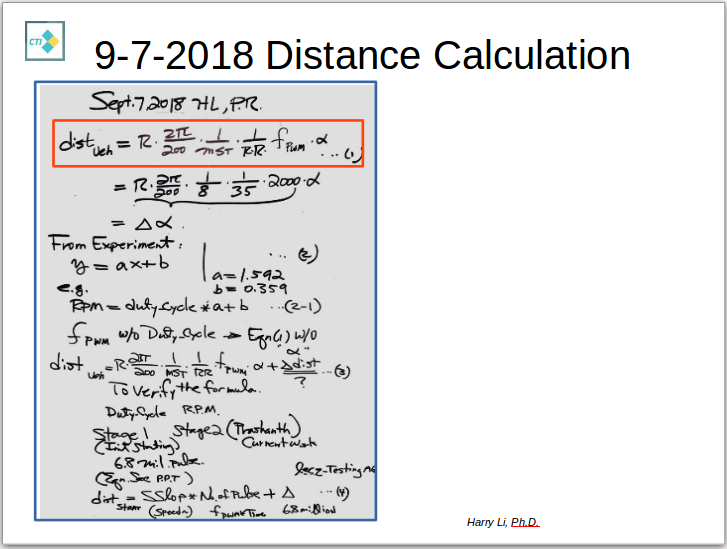 CTI
9-7-2018 Distance Calculation
Sept. 7, 2018 HL, P.R.
dist_veh = R · 2π/200 · 1/MST · 1/R.R. f_PWM · α ... (1)
= R · 2π/200 · 1/8 · 1/35 · 2000 · α
= Δ α.
From Experiment:
y = ax+b ... (2)
a = 1.592
e.g. b = 0.359
RPM = duty_cycle * a + b ... (2-1)
f_PWM w/o Duty_Cycle → Eqn(1) w/o
α
dist_veh = R · 2π/200 · 1/MST · 1/RR · f_PWM · α + Δdist/? ... (3)
To Verify the formula.
Duty Cycle R.P.M.
Stage 1 Stage 2 (Prashanth)
(Init Starting) Current Work
6.8 mil. pulse.
(Eqn. See P.P.T)
dist_start = SSlop * No. of Pulse + Δ ... (4)
(Speed) f_PWM * Time 6.8 million
Harry Li, Ph.D.